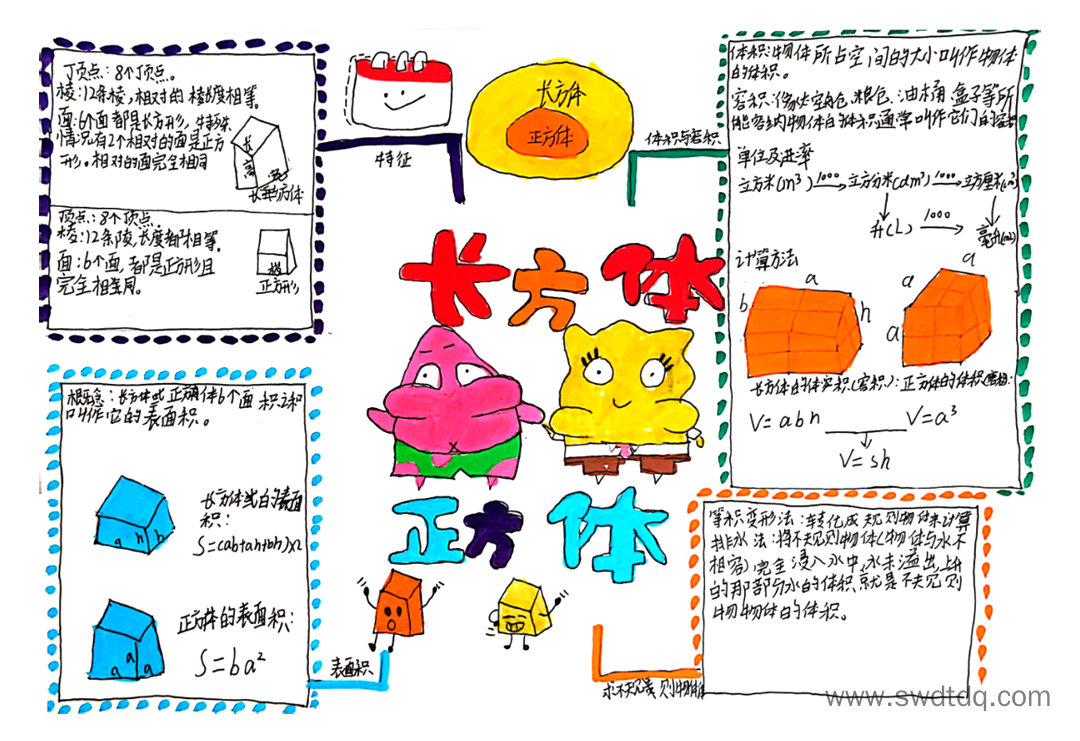 顶点：8个顶点。
棱：12条棱，相对的棱长度相等。
面：6个面都是长方形，特殊
情况有2个相对的面是正方
形。相对的面完全相同
长
高
宽
长方体
顶点：8个顶点。
棱：12条棱，长度都相等。
面：6个面，都是正方形且
完全相同。
棱
正方形
特征
长方体
正方体
体积与容积
体积：物体所占空间的大小叫作物体
的体积。
容积：像火车仓、粮仓、油桶、盒子等所
能容纳物体的体积通常叫作它们的容积
单位及进率
立方米(m³) 1000 立方分米(dm³) 1000 立方厘米
升(L) 1000 毫升(mL)
计算方法
a
b
h
a
a
长方体的体积(容积)：正方体的体积
V=abh
V=a³
V=sh
长方体
正方体
概念：长方体或正方体6个面积之和
叫作它的表面积。
a h b
长方体或的表面
积：
S=(ab+ah+bh)x2
a a a
正方体的表面积：
S=6a²
表面积
等积变形法：转化成规则物体来计算
排水法：将不规则物体(物体与水不
相容)完全浸入水中，水未溢出，上升
的那部分水的体积就是不规则
物物体的体积。
求不规则物体
www.swdtdq.com